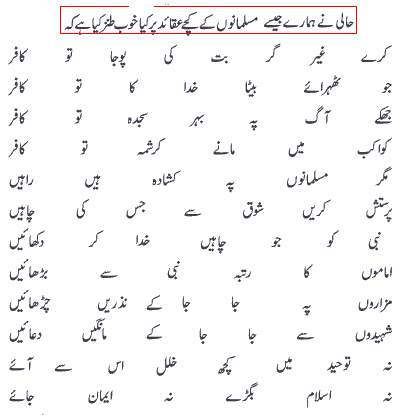 حالی نے ہمارے جیسے مسلمانوں کے کچے عقائد پر کیا خوب طنز کیا ہے کہ
کرے غیر گر بت کی پوجا تو کافر
جو ٹھہرائے بیٹا خدا کا تو کافر
جھکے آگ پہ بہر سجدہ تو کافر
کواکب میں مانے کرشمہ تو کافر
مگر مسلمانوں پہ کشادہ ہیں راہیں
پرستش کریں شوق سے جس کی چاہیں
نبی کو جو چاہیں خدا کر دکھائیں
اماموں کا رتبہ نبی سے بڑھائیں
مزاروں پہ جا جا کے نذریں چڑھائیں
شہیدوں سے جا جا کے مانگیں دعائیں
نہ توحید میں کچھ خلل اس سے آئے
نہ اسلام بگڑے نہ ایمان جائے